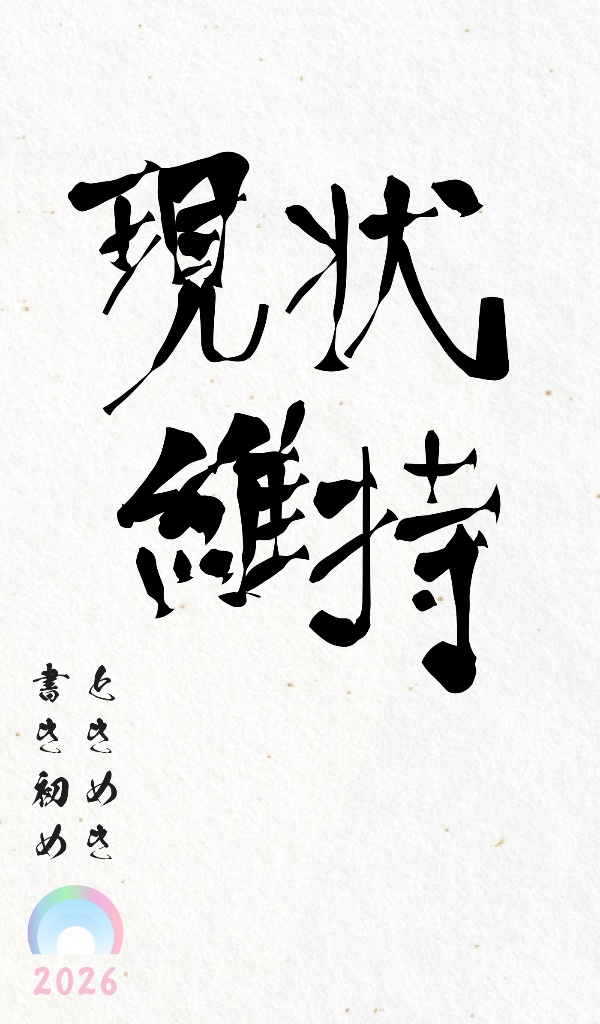 現状
維持
ときめき
書き初め
2026